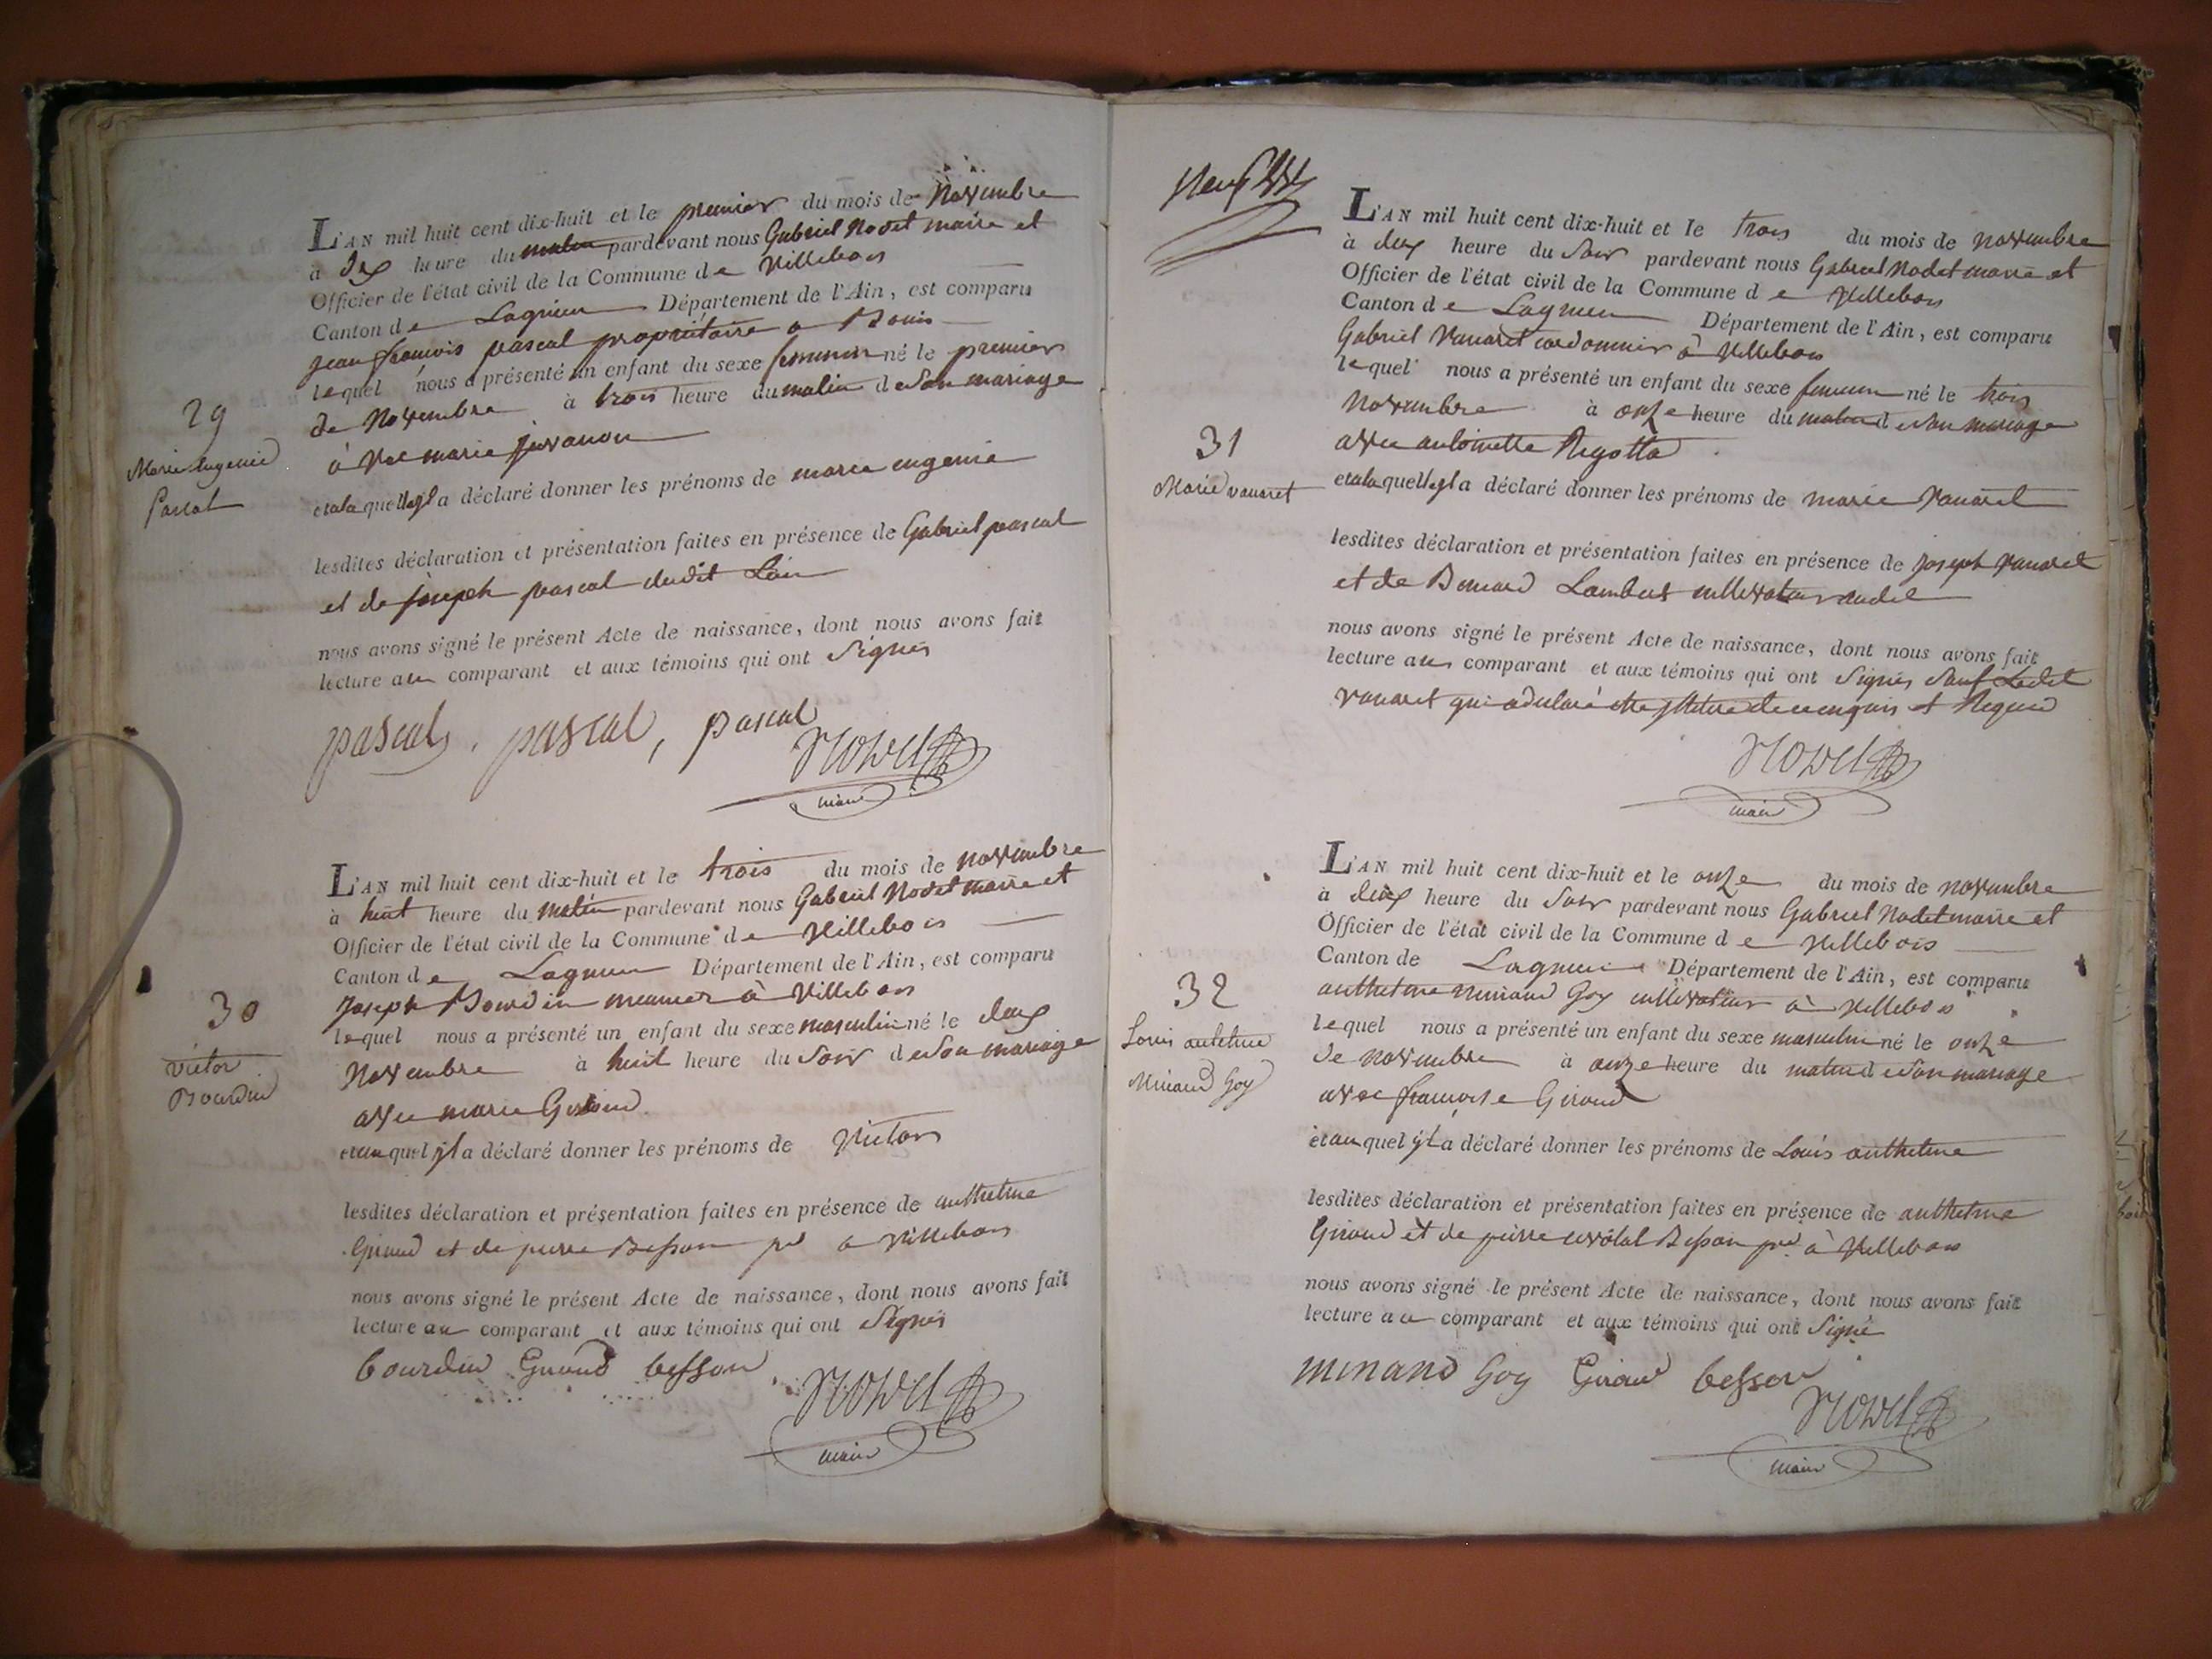 L'AN mil huit cent dix-huit et le premier du mois de Novembre
à dix heure du matin pardevant nous Gabriel Nodet maire et
Officier de l'état civil de la Commune de Villebois
Canton de Lagnieu Département de l'Ain, est comparu
jean françois pascal propriétaire a Bouis
lequel nous a présenté un enfant du sexe feminin né le premier
de Novembre à trois heure du matin de son mariage
à Vec marie juvanon
29
Marie eugenie
Pascal
et a la quelle yl a déclaré donner les prénoms de marie eugenie
lesdites déclaration et présentation faites en présence de Gabriel pascal
et de joseph pascal dudit Lieu
nous avons signé le présent Acte de naissance, dont nous avons fait
lecture au comparant et aux témoins qui ont Signés
pascal, pascal, pascal
Nodet
maire
L'AN mil huit cent dix-huit et le trois du mois de novembre
à huit heure du matin pardevant nous Gabriel Nodet maire et
Officier de l'état civil de la Commune de Villebois
Canton de Lagnieu Département de l'Ain, est comparu
Joseph Bourdin meunier à Villebois
lequel nous a présenté un enfant du sexe masculin né le deux
Novembre à huit heure du Soir de son mariage
avec marie Giroud
30
Victor
Bourdin
et au quel yl a déclaré donner les prénoms de Victor
lesdites déclaration et présentation faites en présence de anthelme
Giroud et de pierre Besson pre a Villebois
nous avons signé le présent Acte de naissance, dont nous avons fait
lecture au comparant et aux témoins qui ont Signés
bourdin Giroud besson
Nodet
maire
Neuf
L'AN mil huit cent dix-huit et le trois du mois de novembre
à deux heure du Soir pardevant nous Gabriel Nodet maire et
Officier de l'état civil de la Commune de Villebois
Canton de Lagnieu Département de l'Ain, est comparu
Gabriel Vanaret cordonnier à Villebois
lequel nous a présenté un enfant du sexe feminin né le trois
Novembre à onze heure du matin de son mariage
avec antoinette Regotta
31
Marie vanaret
et a la quelle yl a déclaré donner les prénoms de marie Vanaret
lesdites déclaration et présentation faites en présence de joseph Vanaret
et de Bernard Lambert cultivateur audit
nous avons signé le présent Acte de naissance, dont nous avons fait
lecture au comparant et aux témoins qui ont Signés Sauf Ledit
vanaret qui a declaré etre yliteré de ce enquis et Requis
Nodet
maire
L'AN mil huit cent dix-huit et le onze du mois de novembre
à deux heure du Soir pardevant nous Gabriel Nodet maire et
Officier de l'état civil de la Commune de Villebois
Canton de Lagnieu Département de l'Ain, est comparu
anthelme Minand Goy cultivateur à Villebois
lequel nous a présenté un enfant du sexe masculin né le onze
de novembre à onze heure du matin de son mariage
avec françoise Giroud
32
Louis antelme
Minand Goy
et au quel yl a déclaré donner les prénoms de Louis anthelme
lesdites déclaration et présentation faites en présence de anthelme
Giroud et de pierre Besson pre à Villebois
nous avons signé le présent Acte de naissance, dont nous avons fait
lecture au comparant et aux témoins qui ont Signé
minand Goy Giroud besson
Nodet
maire